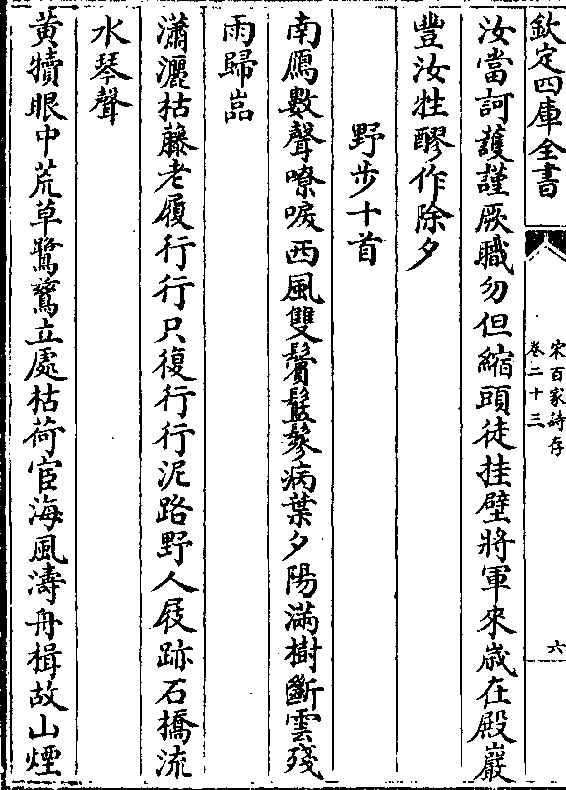 欽定四庫全書
宋百家詩存
卷二十三
六
汝當訶護謹厥職勿但縮頭徒挂壁將軍來歲在殿巖
豐汝牲醪作除夕
野步十首
南鴈數聲嘹唳西風雙鬢鬖髿病葉夕陽滿樹斷雲殘
雨歸嵓
瀟灑枯藤老屨行行只復行行泥路野人屐跡石橋流
水琴聲
黃犢眼中荒草鷺鷥立處枯荷宦海風濤舟楫故山煙